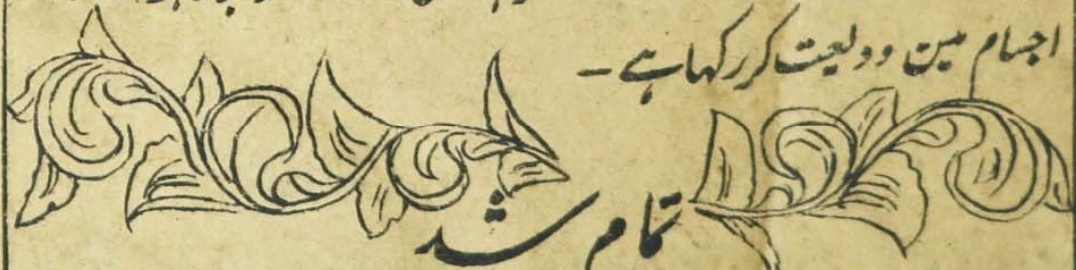 اجسام مین ودیعت کر رکہا ہے ـ
تمام شد